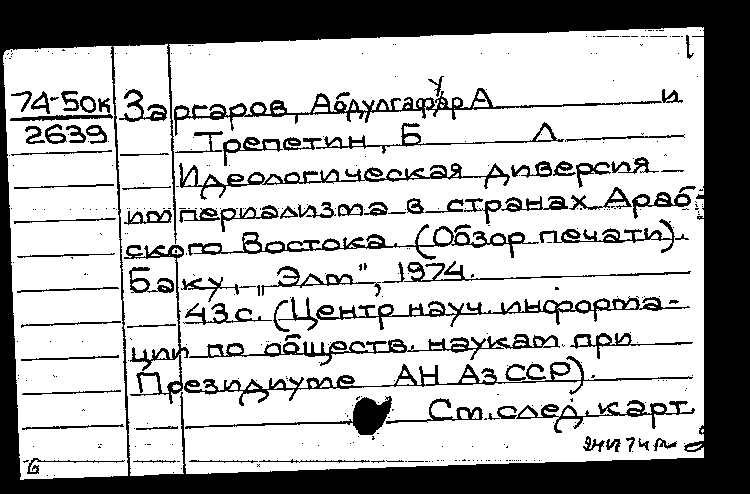 1
74-50к Заргаров, Абдулгафар А и
2639 Трепетин, Б Л
Идеологическая диверсия
империализма в странах Араб-
ского Востока. (Обзор печати).
Баку, „Элм", 1974.
43 с. (Центр науч. информа-
ции по обществ. наукам при
Президиуме АН АзССР).
См. след. карт.
б